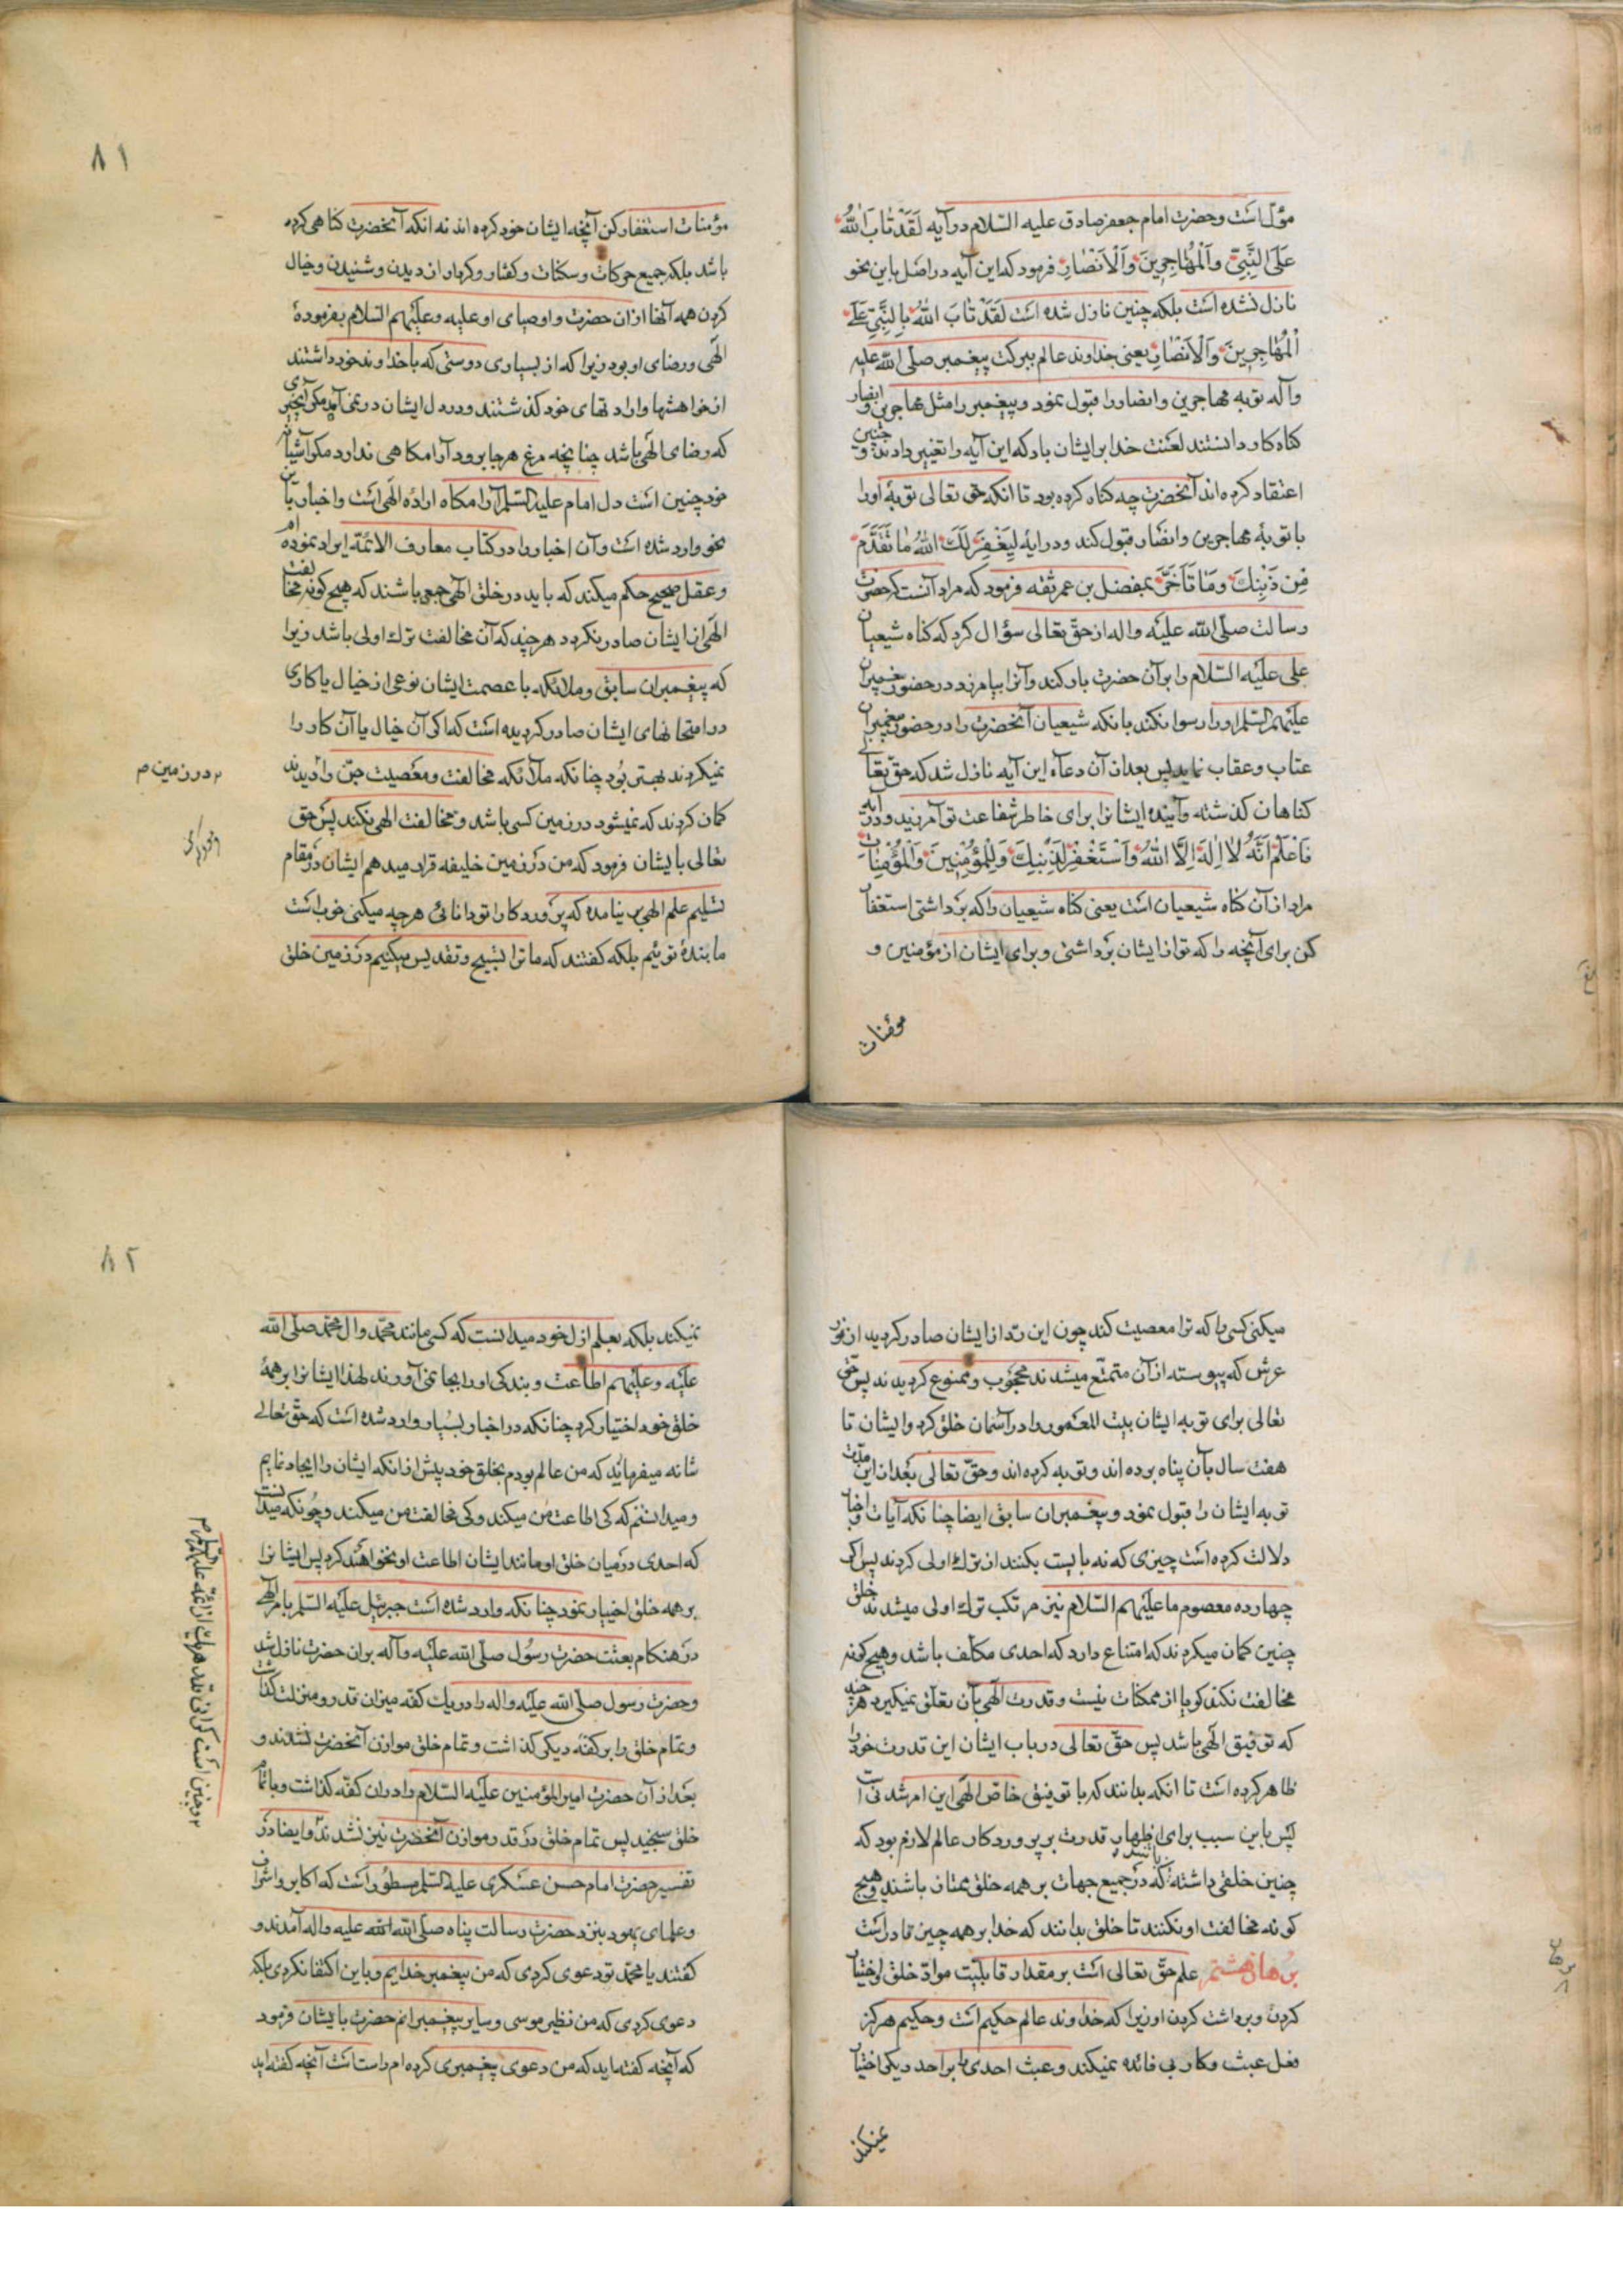 مؤلست وحضرت امام جعفر صادق علیه السّلام در آیه لَقَدْ تٰابَ اللّٰهُ
عَلَی النَّبِیِّ وَالْمُهٰاجِرِینَ وَالْاَنْصٰارِ فرمود که این آیه در اصل باین نحو
نازل نشده است بلکه چنین نازل شده است لَقَدْ تٰابَ اللّٰهُ بِالنَّبِیِّ عَلَی
الْمُهٰاجِرِینَ وَالْاَنْصٰارِ یعنی خداوند عالم ببرکت پیغمبر صلّی اللّه علیه
وآله توبه مهاجرین وانصار را قبول نمود وپیغمبر را مثل مهاجرین و انصار
کناه کار دانستند لعنت خدا بر ایشان باد که این آیه را تغییر دادند و چنین
اعتقاد کرده اند آنحضرت چه کناه کرده بود تا انکه حق تعالی توبهٔ اورا
با توبهٔ مهاجرین وانصار قبول کند ودر ایهٔ لِیَغْفِرَ لَكَ اللّٰهُ مٰا تَقَدَّمَ
مِنْ ذَنْبِكَ وَمٰا تَاَخَّرَ بمفضل بن عمر ثقه فرمود که مراد آنست که حضرت
رسالت صلّی اللّه علیه واله از حقّ تعالی سؤال کرد که کناه شیعیان
علی علیه السّلام را بر آن حضرت بار کند وآنرا بیامرزد ودر حضور پیغمبران
علیهم السّلم اورا رسوا نکند بانکه شیعیان آنحضرت را در حضور پیغمبران
عتاب وعقاب نماید پس بعد از آن دعاه این آیه نازل شد که حقّ تعالی
کناهان کذشته وآینده ایشانرا برای خاطر شفاعت تو آمرزید ودر آیه
فَاعْلَمْ اَنَّهُ لٰا اِلٰهَ اِلَّا اللّٰهُ وَاسْتَغْفِرْ لِذَنْبِكَ وَلِلْمُؤْمِنِینَ وَالْمُؤْمِنٰاتِ
مراد از آن کناه شیعیان است یعنی کناه شیعیان را که برداشتی استغفار
کن برای آنچه را که تو از ایشان برداشتی وبرای ایشان از مؤمنین و
مؤمنات
٨١
مؤمنات استغفار کن آنچه ایشان خود کرده اند نه انکه آنحضرت کناهی کرده
باشد بلکه جمیع حرکات وسکنات وکفتار وکردار از دیدن وشنیدن وخیال
کردن همه آنها از ان حضرت واوصیای او علیه وعلیهم السّلام بفرمودهٔ
الهی ورضای او بود زیرا که از بسیاری دوستی که با خداوند خود داشتند
از خواهشها وارادتهای خود کذشتند ودر دل ایشان در نمی آید مکر آنچیزی
که رضای الهی باشد چنانچه مرغ هر جا برود آرامکاهی ندارد مکر آشیانه
خود چنین است دل امام علیه السّلم آرامکاه ارادهٔ الهی است واخبار باین
نحو وارد شده است وآن اخبار را در کتاب معارف الائمّة ایراد نموده ام
وعقل صحیح حکم میکند که باید در خلق الهی جمعی باشند که هیچ کونه مخالفت
الهی از ایشان صادر نکردد هر چند که آن مخالفت ترك اولی باشد زیرا
که پیغمبران سابق وملائکه با عصمت ایشان نوعی از خیال یا کاری
در امتحانهای ایشان صادر کردیده است که اکر آن خیال یا آن کار را
نمیکردند بهتر بُود چنانکه ملائکه مخالفت ومعصیت جنّ را دیدند
کمان کردند که نمیشود در زمین کسی باشد ومخالفت الهی نکند پس حق
تعالی بایشان فرمود که من در زمین خلیفه قرار میدهم ایشان در مقام
تسلیم علم الهی بر نیامده که پروردکارا تو دانائی هر چه میکنی خوب است
ما بندهٔ توئیم بلکه کفتند که ما ترا تسبیح وتقدیس میکنیم در زمین خلق
٢ در زمین م
میکنی کسی را که ترا معصیت کند چون این رد از ایشان صادر کردید از نور
عرش که پیوسته از آن متمتّع میشدند محجوب وممنوع کردیدند پس حقّ
تعالی برای توبه ایشان بیت المعمور را در آسمان خلق کرد وایشان تا
هفت سال بآن پناه برده اند وتوبه کرده اند وحقّ تعالی بعد از این مدّت
توبه ایشان را قبول نمود وپیغمبران سابق ایضا چنانکه آیات واخبار
دلالت کرده است چیزی که نه بایست بکنند از ترك اولی کردند پس اکر
چهارده معصوم ما علیهم السّلام نیز مرتکب ترك اولی میشدند خلق
چنین کمان میکردند که امتناع دارد که احدی مکلّف باشد وهیچ کونه
مخالفت نکند کویا از ممکنات نیست وقدرت الهی بآن تعلّق نمیکیرد هر چند
که توفیق الهی باشد پس حقّ تعالی در باب ایشان این قدرت خود را
ظاهر کرده است تا انکه بدانند که با توفیق خاص الهی این امر شدنی است
پس باین سبب برای اظهار قدرت بر پروردکار عالم لازم بود که
چنین خلقی داشته باشد که در جمیع جهات بر همه خلق ممتاز باشند وهیچ
کونه مخالفت او نکنند تا خلق بدانند که خدا بر همه چیز قادر است
برهان هشتم علم حقّ تعالی است بر مقدار قابلیّت موادّ خلق اختیار
کردن وبرداشت کردن او زیرا که خداوند عالم حکیم است وحکیم هرکز
فعل عبث وکار بی فائده نمیکند وعبث احدی را بر احد دیکر اختیار
نمیکند
برهان
٨
٨٢
نمیکند بلکه بعلم ازل خود میدانست که کسی مانند محمّد وال محمّد صلّی اللّه
علیه وعلیهم اطاعت وبندکی اورا بجا نمی آورند لهذا ایشانرا بر همهٔ
خلق خود اختیار کرد چنانکه در اخبار بسیار وارد شده است که حقّ تعالی
شانه میفرماید که من عالم بودم بخلق خود پیش از انکه ایشان را ایجاد نمایم
ومیدانستم که کی اطاعت من میکند وکی مخالفت من میکند وچونکه میدانست
که احدی در میان خلق او مانند ایشان اطاعت او نخواهند کرد پس ایشانرا
بر همه خلق اختیار نمود چنانکه وارد شده است جبرئیل علیه السّلم بامر الهی
در هنکام بعثت حضرت رسول صلّی اللّه علیه وآله بر ان حضرت نازل شد
وحضرت رسول صلّی اللّه علیه واله را در یك کفه میزان قدر ومنزلت کذاشت
وتمام خلق را بر کفّه دیکر کذاشت وتمام خلق موازن آنحضرت نشدند و
بعد از آن حضرت امیر المؤمنین علیه السّلام را در ان کفّه کذاشت وبا تمام
خلق سنجید پس تمام خلق در قدر موازن آنحضرت نیز نشدند وایضا در
تفسیر حضرت امام حسن عسکری علیه السّلم مسطور است که اکابر واشراف
وعلمای یهود بنزد حضرت رسالت پناه صلّی اللّه علیه واله آمدند و
کفتند یا محمّد تو دعوی کردی که من پیغمبر خدایم وباین اکتفا نکردی بلکه
دعوی کردی که من نظیر موسی وسایر پیغمبرانم حضرت بایشان فرمود
که آنچه کفته اید که من دعوی پیغمبری کرده ام راست است آنچه کفته اید